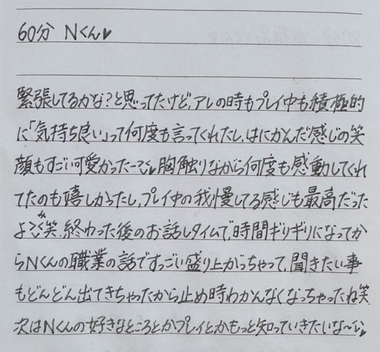 60分 Nくん♥
緊張してるかな?と思ってたけど、アレの時もプレイ中も積極的
に「気持ち良い」って何度も言ってくれたし、はにかんだ感じの笑
顔もすごい可愛かったー♡胸触りながら何度も感動してくれ
てたのも嬉しかったし、プレイ中の我慢してる感じも最高だった
よ〜笑 終わった後のお話しタイムで、時間ギリギリになってか
らNくんの職業の話ですっごい盛り上がっちゃって、聞きたい事
もどんどん出てきちゃったから止め時わかんなくなっちゃったね笑
次はNくんの好きなところとかプレイとかもっと知っていきたいな〜♡